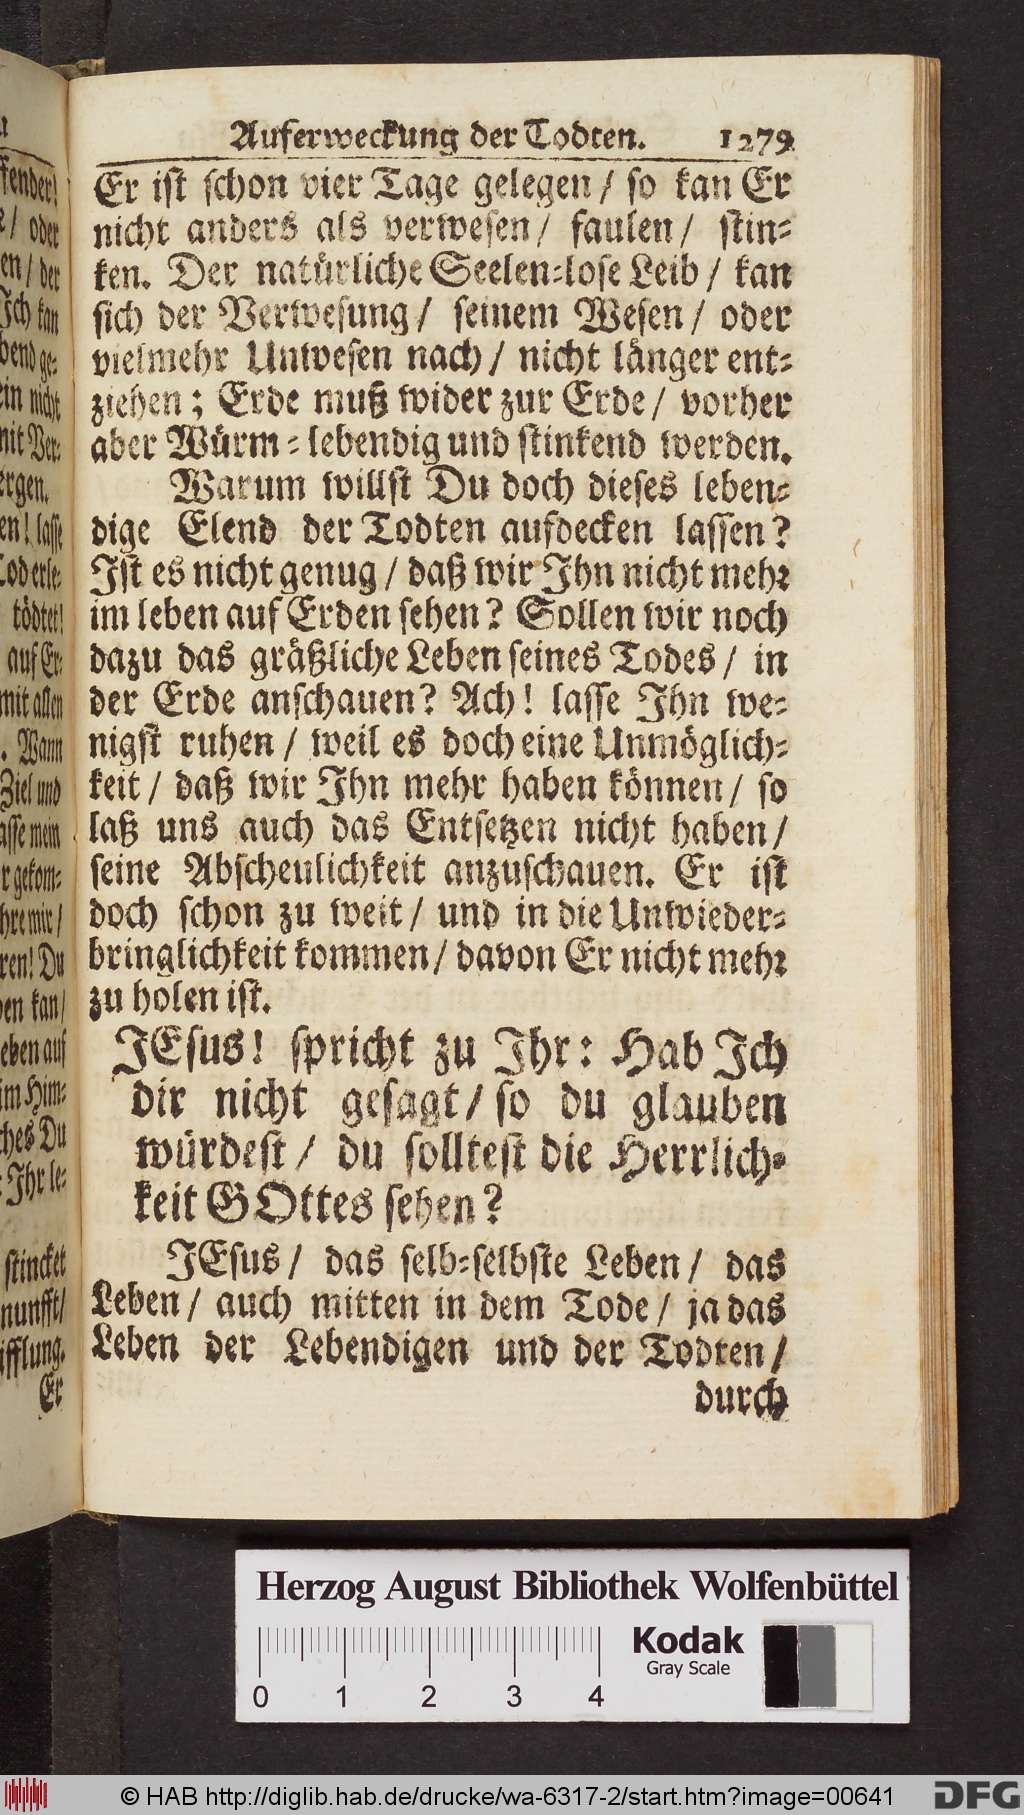 Auferweckung der Todten. 1279
Er ist schon vier Tage gelegen / so kan Er
nicht anders als verwesen / faulen / stin-
ken. Der natürliche Seelen-lose Leib / kan
sich der Verwesung / seinem Wesen / oder
vielmehr Unwesen nach / nicht länger ent-
ziehen; Erde muß wider zur Erde / vorher
aber Würm-lebendig und stinkend werden.
Warum willst Du doch dieses leben-
dige Elend der Todten aufdecken lassen?
Ist es nicht genug / daß wir Ihn nicht mehr
im leben auf Erden sehen? Sollen wir noch
dazu das gräßliche Leben seines Todes / in
der Erde anschauen? Ach! lasse Ihn we-
nigst ruhen / weil es doch eine Unmöglich-
keit / daß wir Ihn mehr haben können / so
laß uns auch das Entsetzen nicht haben /
seine Abscheulichkeit anzuschauen. Er ist
doch schon zu weit / und in die Unwieder-
bringlichkeit kommen / davon Er nicht mehr
zu holen ist.
JEsus! spricht zu Ihr: Hab Ich
dir nicht gesagt / so du glauben
würdest / du solltest die Herrlich-
keit GOttes sehen?
JEsus / das selb-selbste Leben / das
Leben / auch mitten in dem Tode / ja das
Leben der Lebendigen und der Todten /
durch
oder
der
Ich kan
ein nicht
mit Ver-
en! lasse
tödtet!
auf Er-
mit allen
. Wann
Ziel und
asse mein
r gekom-
hre mir /
ren! Du
en kan /
eben auf
im Him-
ches Du
Ihr le-
stincket
nunfft /
ifflung.
Er
Herzog August Bibliothek Wolfenbüttel
Kodak
Gray Scale
0 1 2 3 4
© HAB http://diglib.hab.de/drucke/wa-6317-2/start.htm?image=00641
DFG